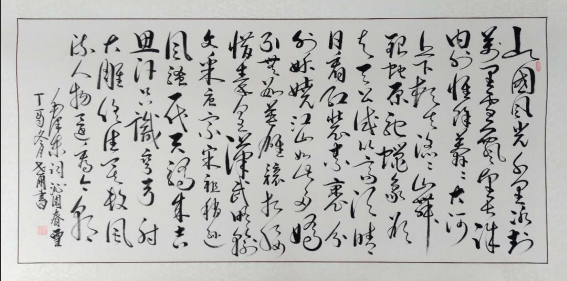 北國风光千里冰封
万里雪飘望长城
内外惟余莽莽大河
上下顿失滔滔山舞
银蛇原驰蜡象欲
与天公试比高须晴
日看红装素裹分
外妖娆江山如此多娇
引无数英雄竞折腰
惜秦皇汉武略输
文采唐宗宋祖稍逊
风骚一代天骄成吉
思汗只识弯弓射
大雕俱往矣数风
流人物还看今朝
毛泽东词沁园春雪
丁酉冬月书